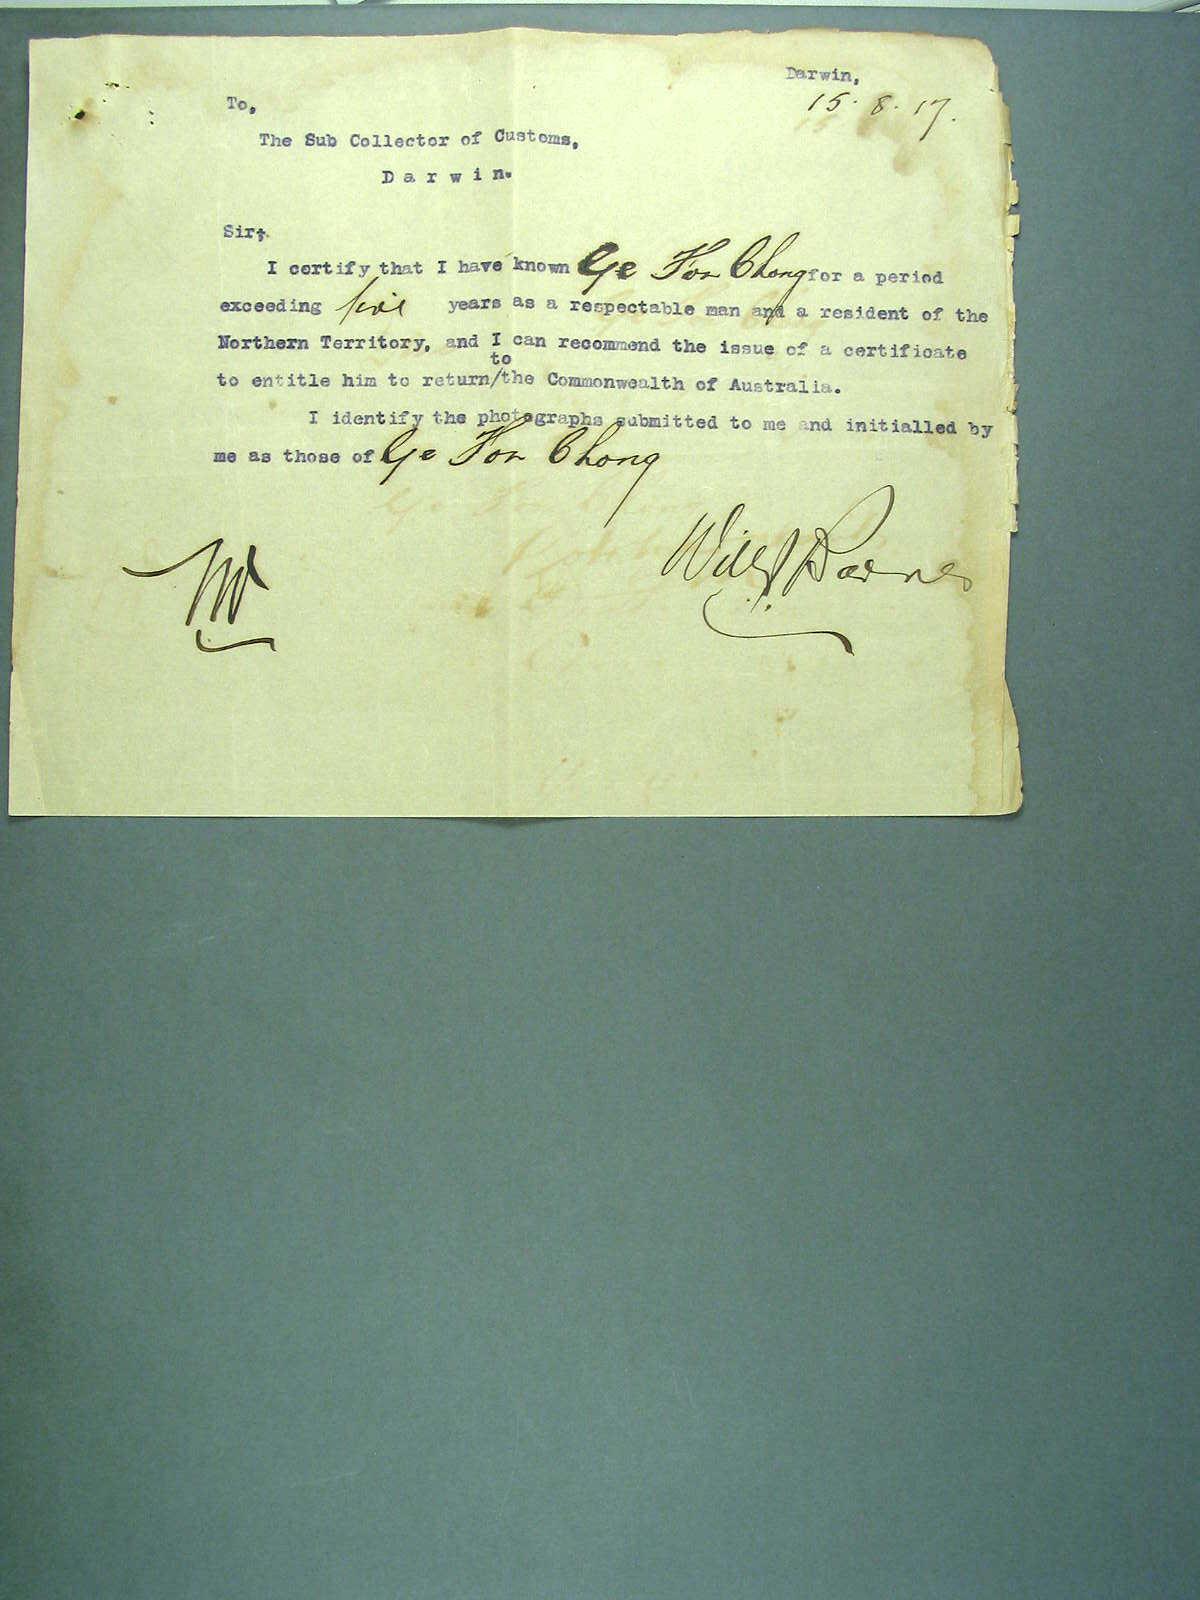 Darwin,
15. 8. 17.
To,
The Sub Collector of Customs,
Darwin.
Sir,
I certify that I have known Ge Fon Chong for a period
exceeding five years as a respectable man and a resident of the
Northern Territory, and I can recommend the issue of a certificate
to
to entitle him to return/the Commonwealth of Australia.
I identify the photographs submitted to me and initialled by
me as those of Ge Fon Chong
Barnes